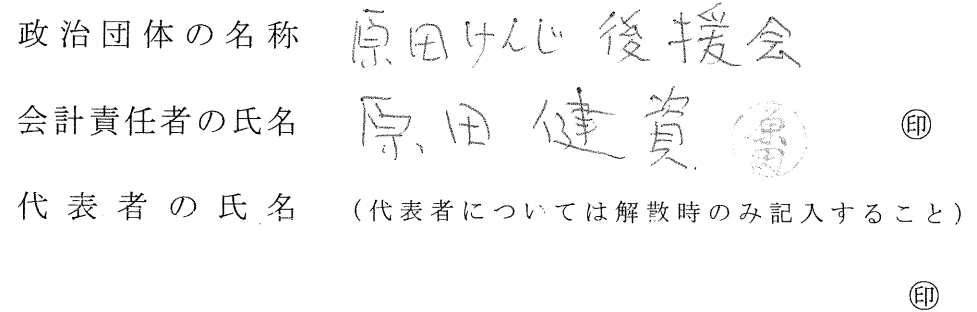 政治団体の名称 原田けんじ後援会
会計責任者の氏名 原田健資 原田 ㊞
代表者の氏名 (代表者については解散時のみ記入すること)
㊞